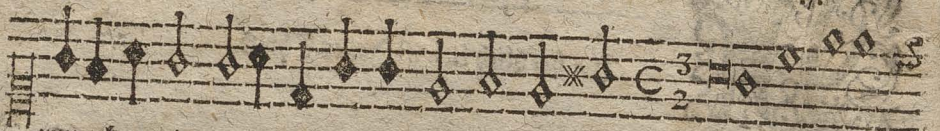 C 3
2